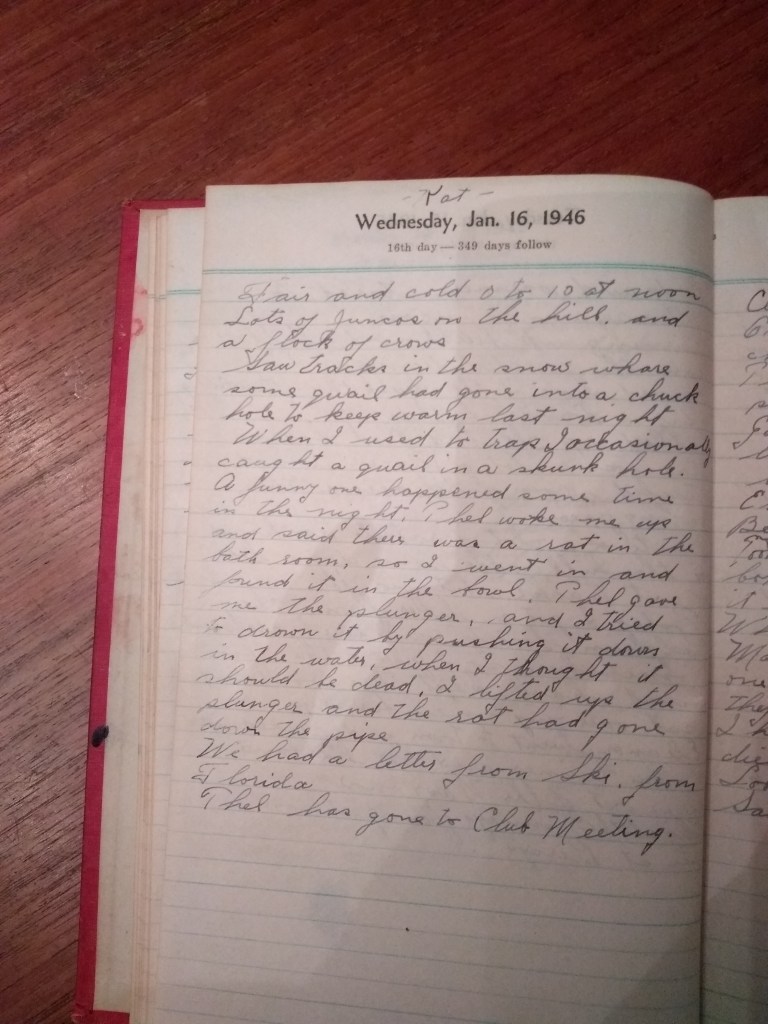 - Rat -
Wednesday, Jan. 16, 1946
16th day — 349 days follow
Fair and cold 0 to 10 at noon
Lots of Juncos on the hill, and
a flock of crows
Saw tracks in the snow whare
some quail had gone into a chuck
hole to keep warm last night
When I used to trap I occasionally
caught a quail in a skunk hole.
A funny one happened some time
in the night, Thel woke me up
and said there was a rat in the
bath room, so I went in and
found it in the bowl. Thel gave
me the plunger, and I tried
to drown it by pushing it down
in the water, when I thought it
should be dead, I lifted up the
plunger and the rat had gone
down the pipe
We had a letter from Ski, from
Florida
Thel has gone to Club Meeting.